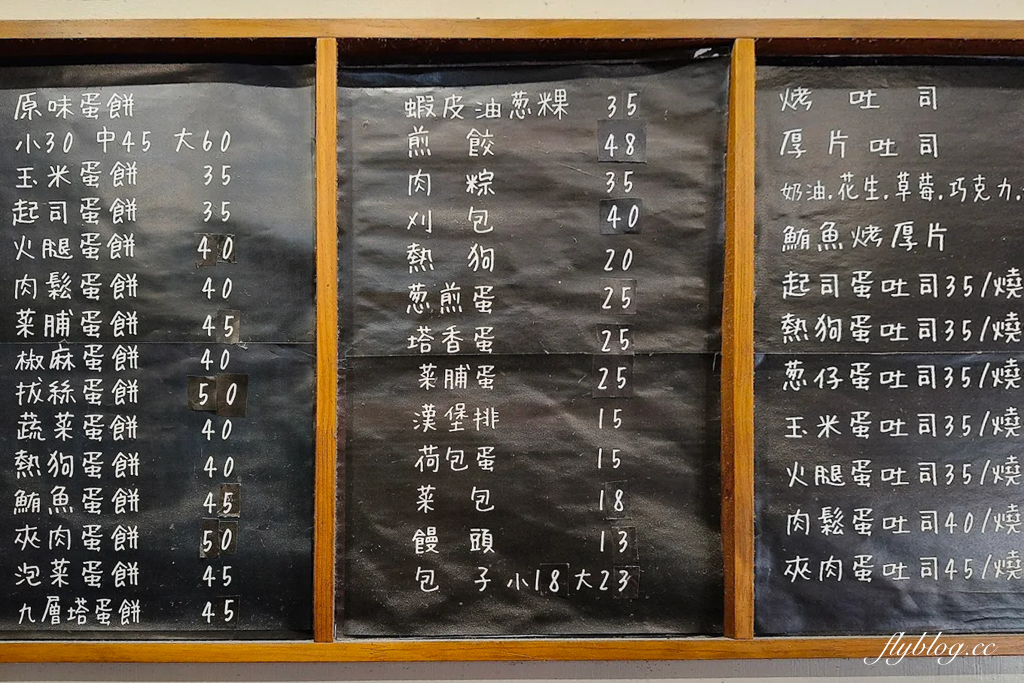 原味蛋餅
小30 中45 大60
玉米蛋餅 35
起司蛋餅 35
火腿蛋餅 40
肉鬆蛋餅 40
菜脯蛋餅 45
椒麻蛋餅 40
拔絲蛋餅 50
蔬菜蛋餅 40
熱狗蛋餅 40
鮪魚蛋餅 45
夾肉蛋餅 50
泡菜蛋餅 45
九層塔蛋餅 45
蝦皮油葱粿 35
煎餃 48
肉粽 35
刈包 40
熱狗 20
葱煎蛋 25
塔香蛋 25
菜脯蛋 25
漢堡排 15
荷包蛋 15
菜包 18
饅頭 13
包子 小18 大23
烤吐司
厚片吐司
奶油.花生.草莓.巧克力.
鮪魚烤厚片
起司蛋吐司35/燒
熱狗蛋吐司35/燒
葱仔蛋吐司35/燒
玉米蛋吐司35/燒
火腿蛋吐司35/燒
肉鬆蛋吐司40/燒
夾肉蛋吐司45/燒
flyblog.cc